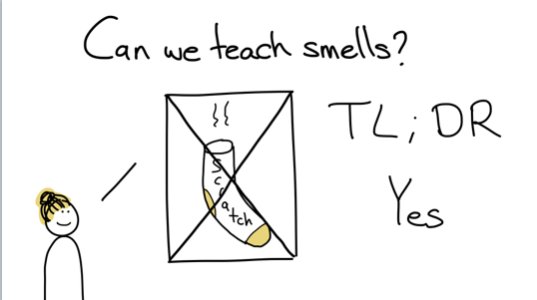 Can we teach smells?
Scratch
TL;DR
Yes